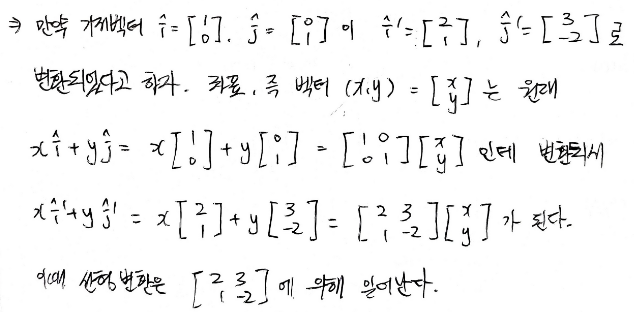 ⇒ 만약 기저벡터 î = [1 0], ĵ = [0 1] 이 î' = [2 1], ĵ' = [3 -2] 로
변환되었다고 하자. 좌표, 즉 벡터 (x,y) = [x y] 는 원래
xî + yĵ = x[1 0] + y[0 1] = [1 0 0 1][x y] 인데 변환되서
xî' + yĵ' = x[2 1] + y[3 -2] = [2 3 1 -2][x y] 가 된다.
이때 선형변환은 [2 3 1 -2] 에 의해 일어난다.